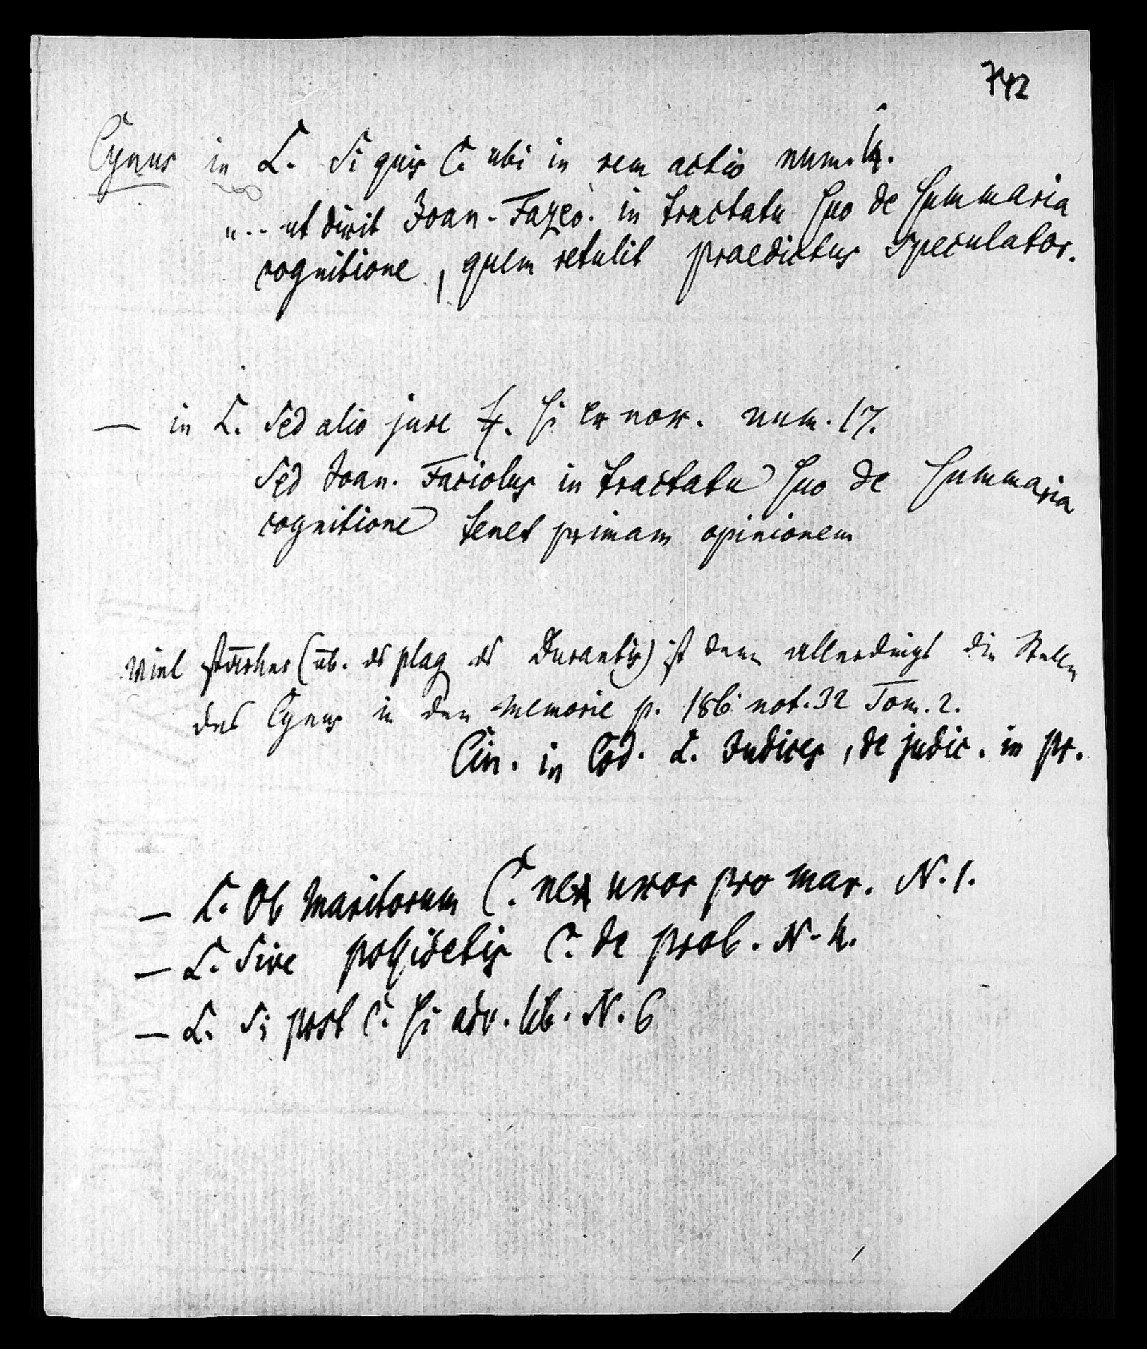 742
Cynus in L. Si quis C. ubi in rem actio num. 4.
".. ut dicit Joan. Fazeo. in tractatu suo de summaria
cognitione, quem retulit praedictus Speculator.
— in L. Sed alio jure ff. si cer num. 17.
Sed Joan. Faciolus in tractatu suo de summaria
cognitione tenet primam opinionem
Viel stärker (üb. ds plag ds Durantis) ist denn allerdings die Stelle
des Cynus in den Memorie p. 186 not. 32 Tom. 2.
Cin. in Cod. L. Judices, de judic. in pr.
— L. Ob Maritorum C. ne uxor pro mar. N. 1.
— L. Sive possidetis C. de prob. N. 4.
— L. Si post C. si adv. lib. N. 6